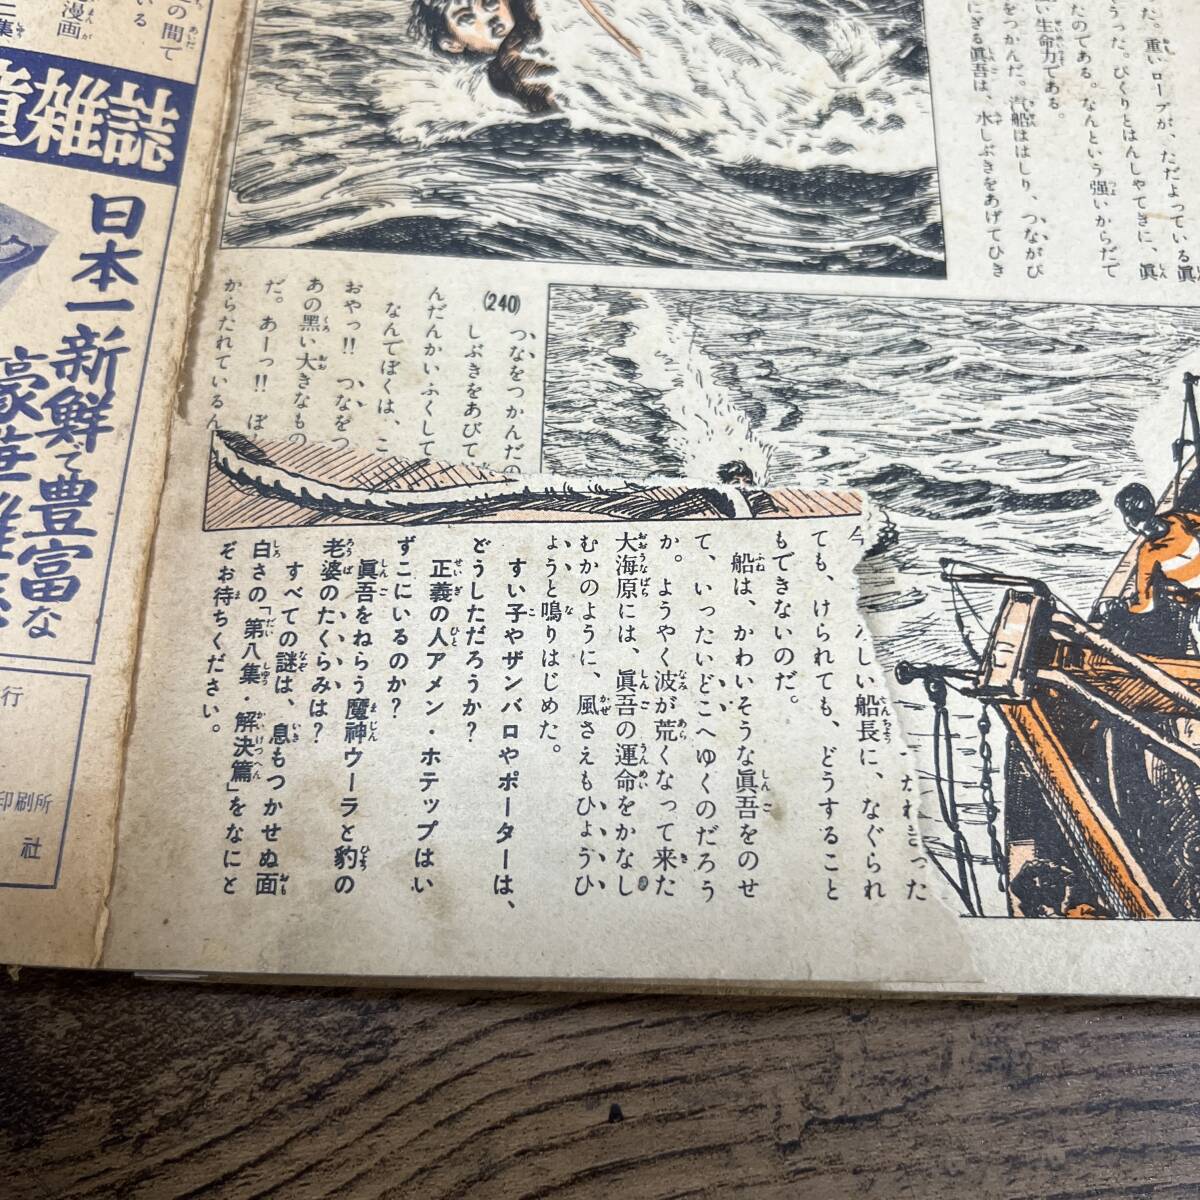 た。重いロープが、ただよっている眞
うった。びくりとはんしゃてきに、眞
たのである。なんという强いからだで
い生命力である。
をつかんだ。汽船ははしり、つながぴ
にぎる眞吾は、水しぶきをあげてひき
(240)
つなをつかんだの
しぶきをあびて
んだんかいふくして
なんてぼくは、こ
おやっ!! つなをつ
あの黑い大きなもの
だ。あーっ!! ぼ
からたれているるん
しい船長に、なぐられ
ても、けられても、どうすること
もできないのだ。
船は、かわいそうな眞吾をのせ
て、いったいどこへゆくのだろう
か。ようやく波が荒くなって来た
大海原には、眞吾の運命をかなし
むかのように、風さえもひょうひ
ょうと鳴りはじめた。
すい子やザンバロやポーターは、
どうしただろうか?
正義の人アメン・ホテップはい
ずこにいるのか?
眞吾をねらう魔神ウーラと豹の
老婆のたくらみは?
すべての謎は、息もつかせぬ面
白さの「第八集・解決篇」をなにと
ぞお待ちください。
の間て
いる
漫画
集
雑誌
日本一新鮮で豊富な
行
印刷所
社